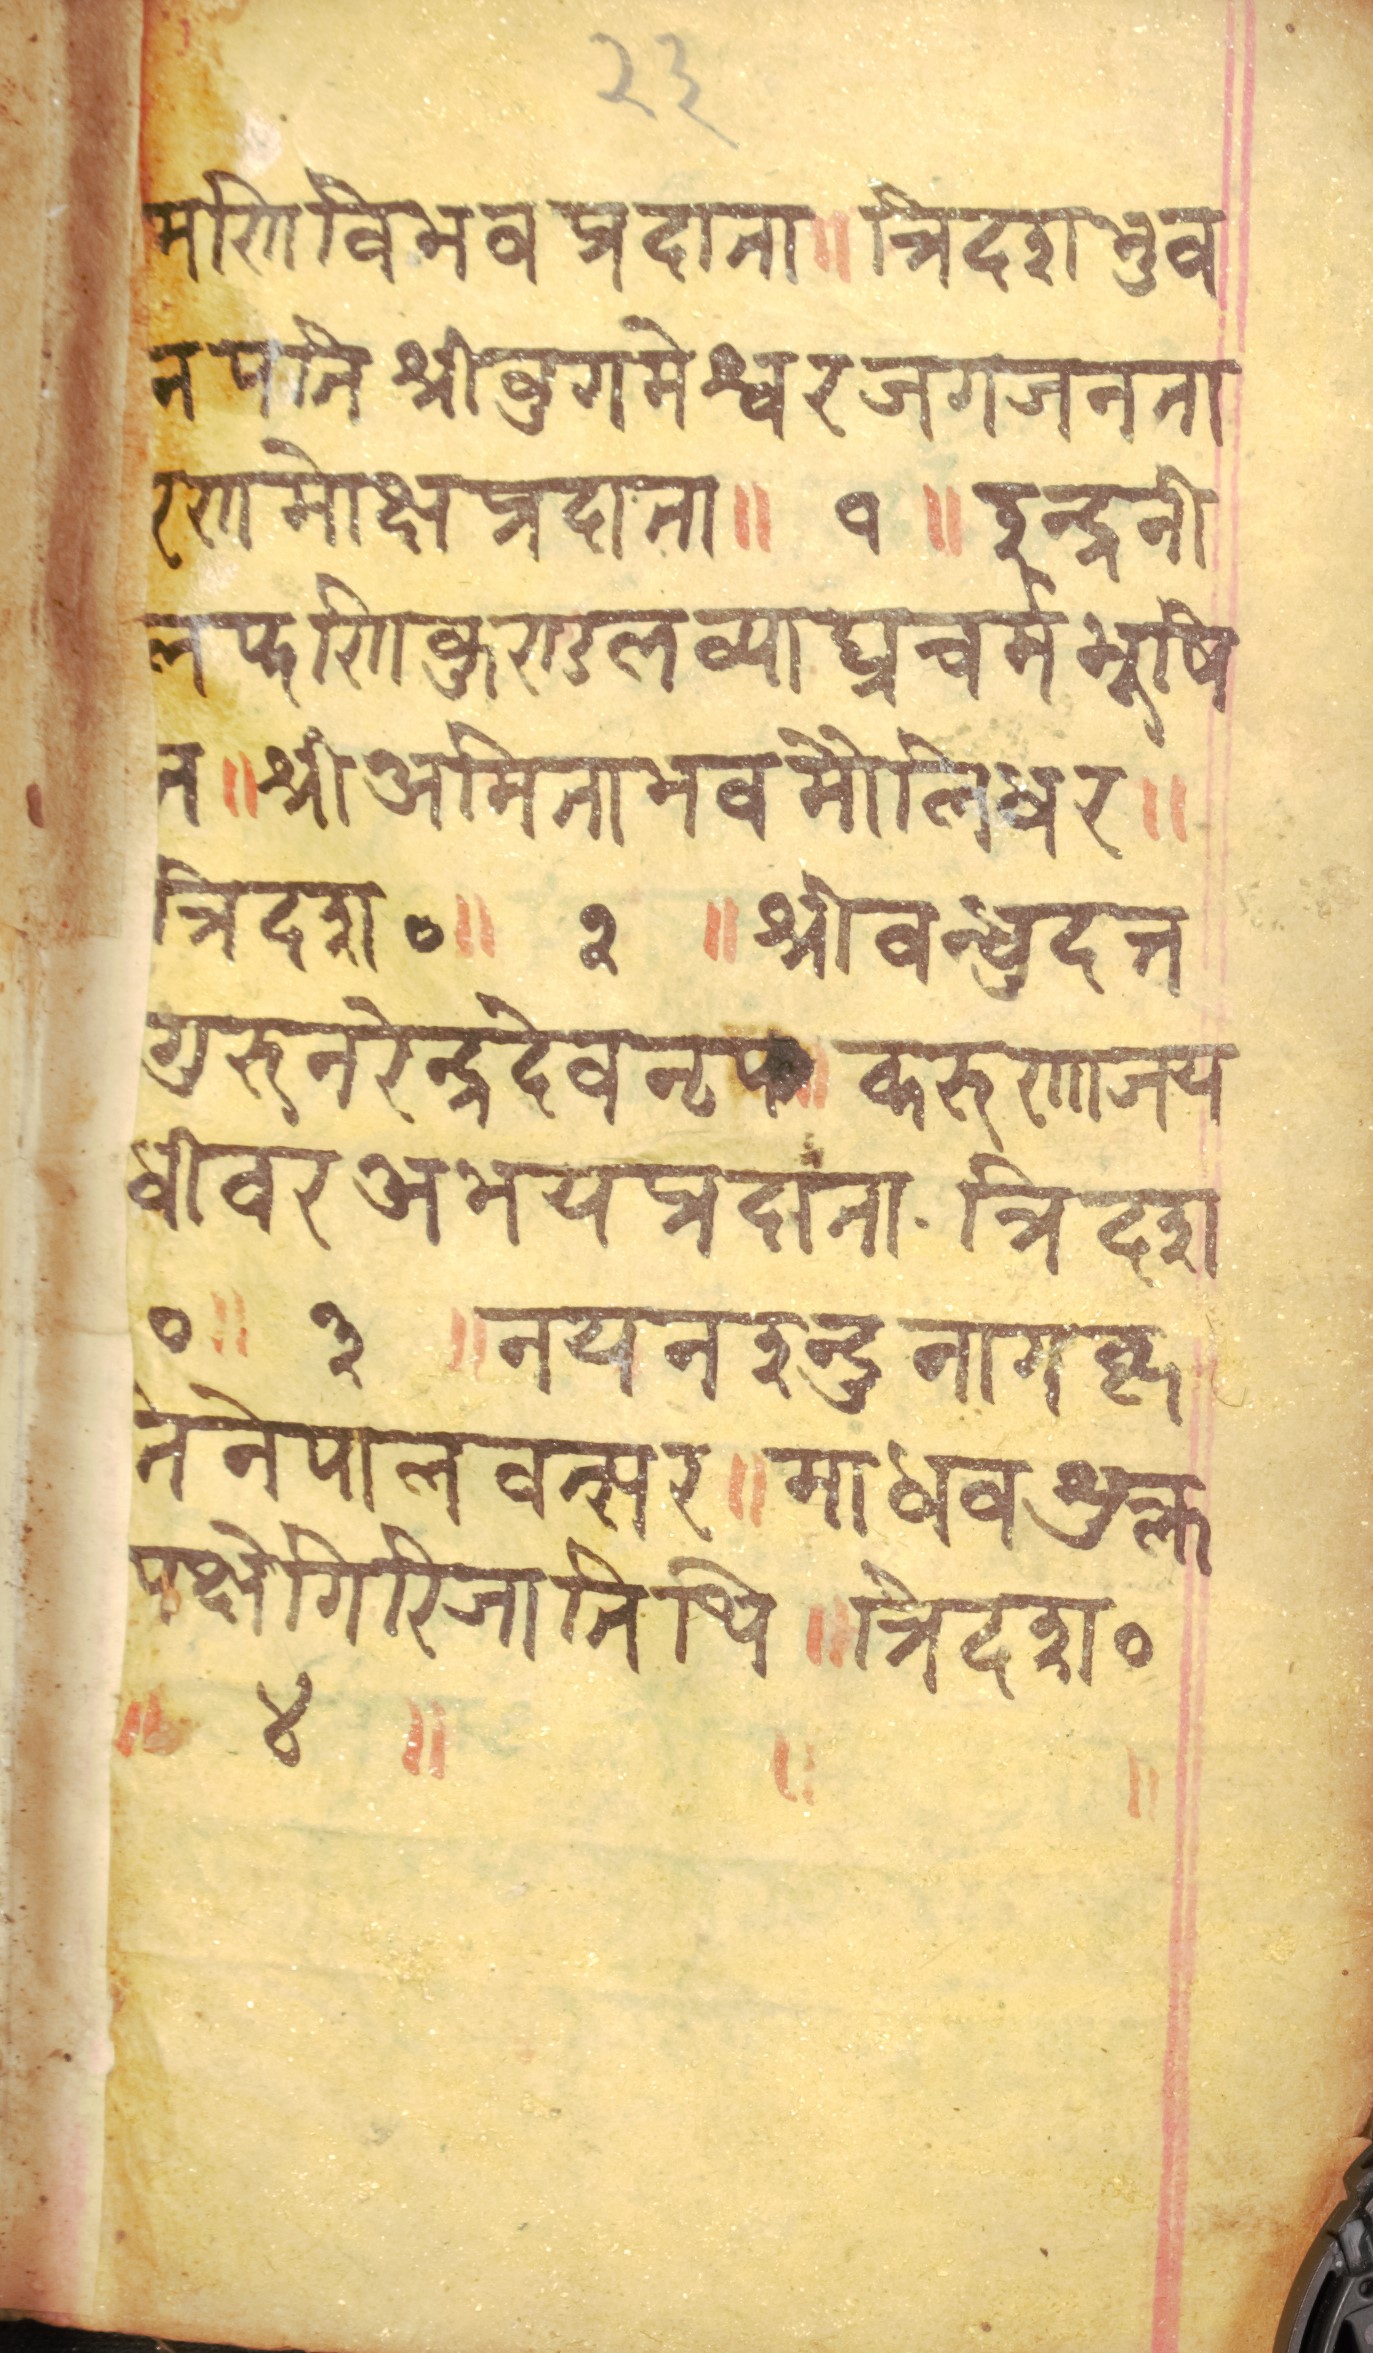 २३
मणिविभव प्रदाता॥ त्रिदशभुव
नपति श्रीवुगमेश्वर जगजनता
रण मोक्ष प्रदाता॥ १ ॥ इन्द्रनी
लफणि कुण्डल व्याघ्रचर्म भूषि
त ॥ श्री अमिताभव मौलिधर ॥
त्रिदश० ॥ २ ॥ श्रीवन्धुदत्त
गुरु नरेन्द्रदेव नृप ॥ करुणाजय
धीवर अभय प्रदाता त्रिदश
० ॥ ३ ॥ नयन इन्दु नाग
ते नेपाल वत्सर ॥ माधव शुक्ल
पक्षे गिरिजा तिथि ॥ त्रिदश०
॥ ४ ॥ ॥ ॥